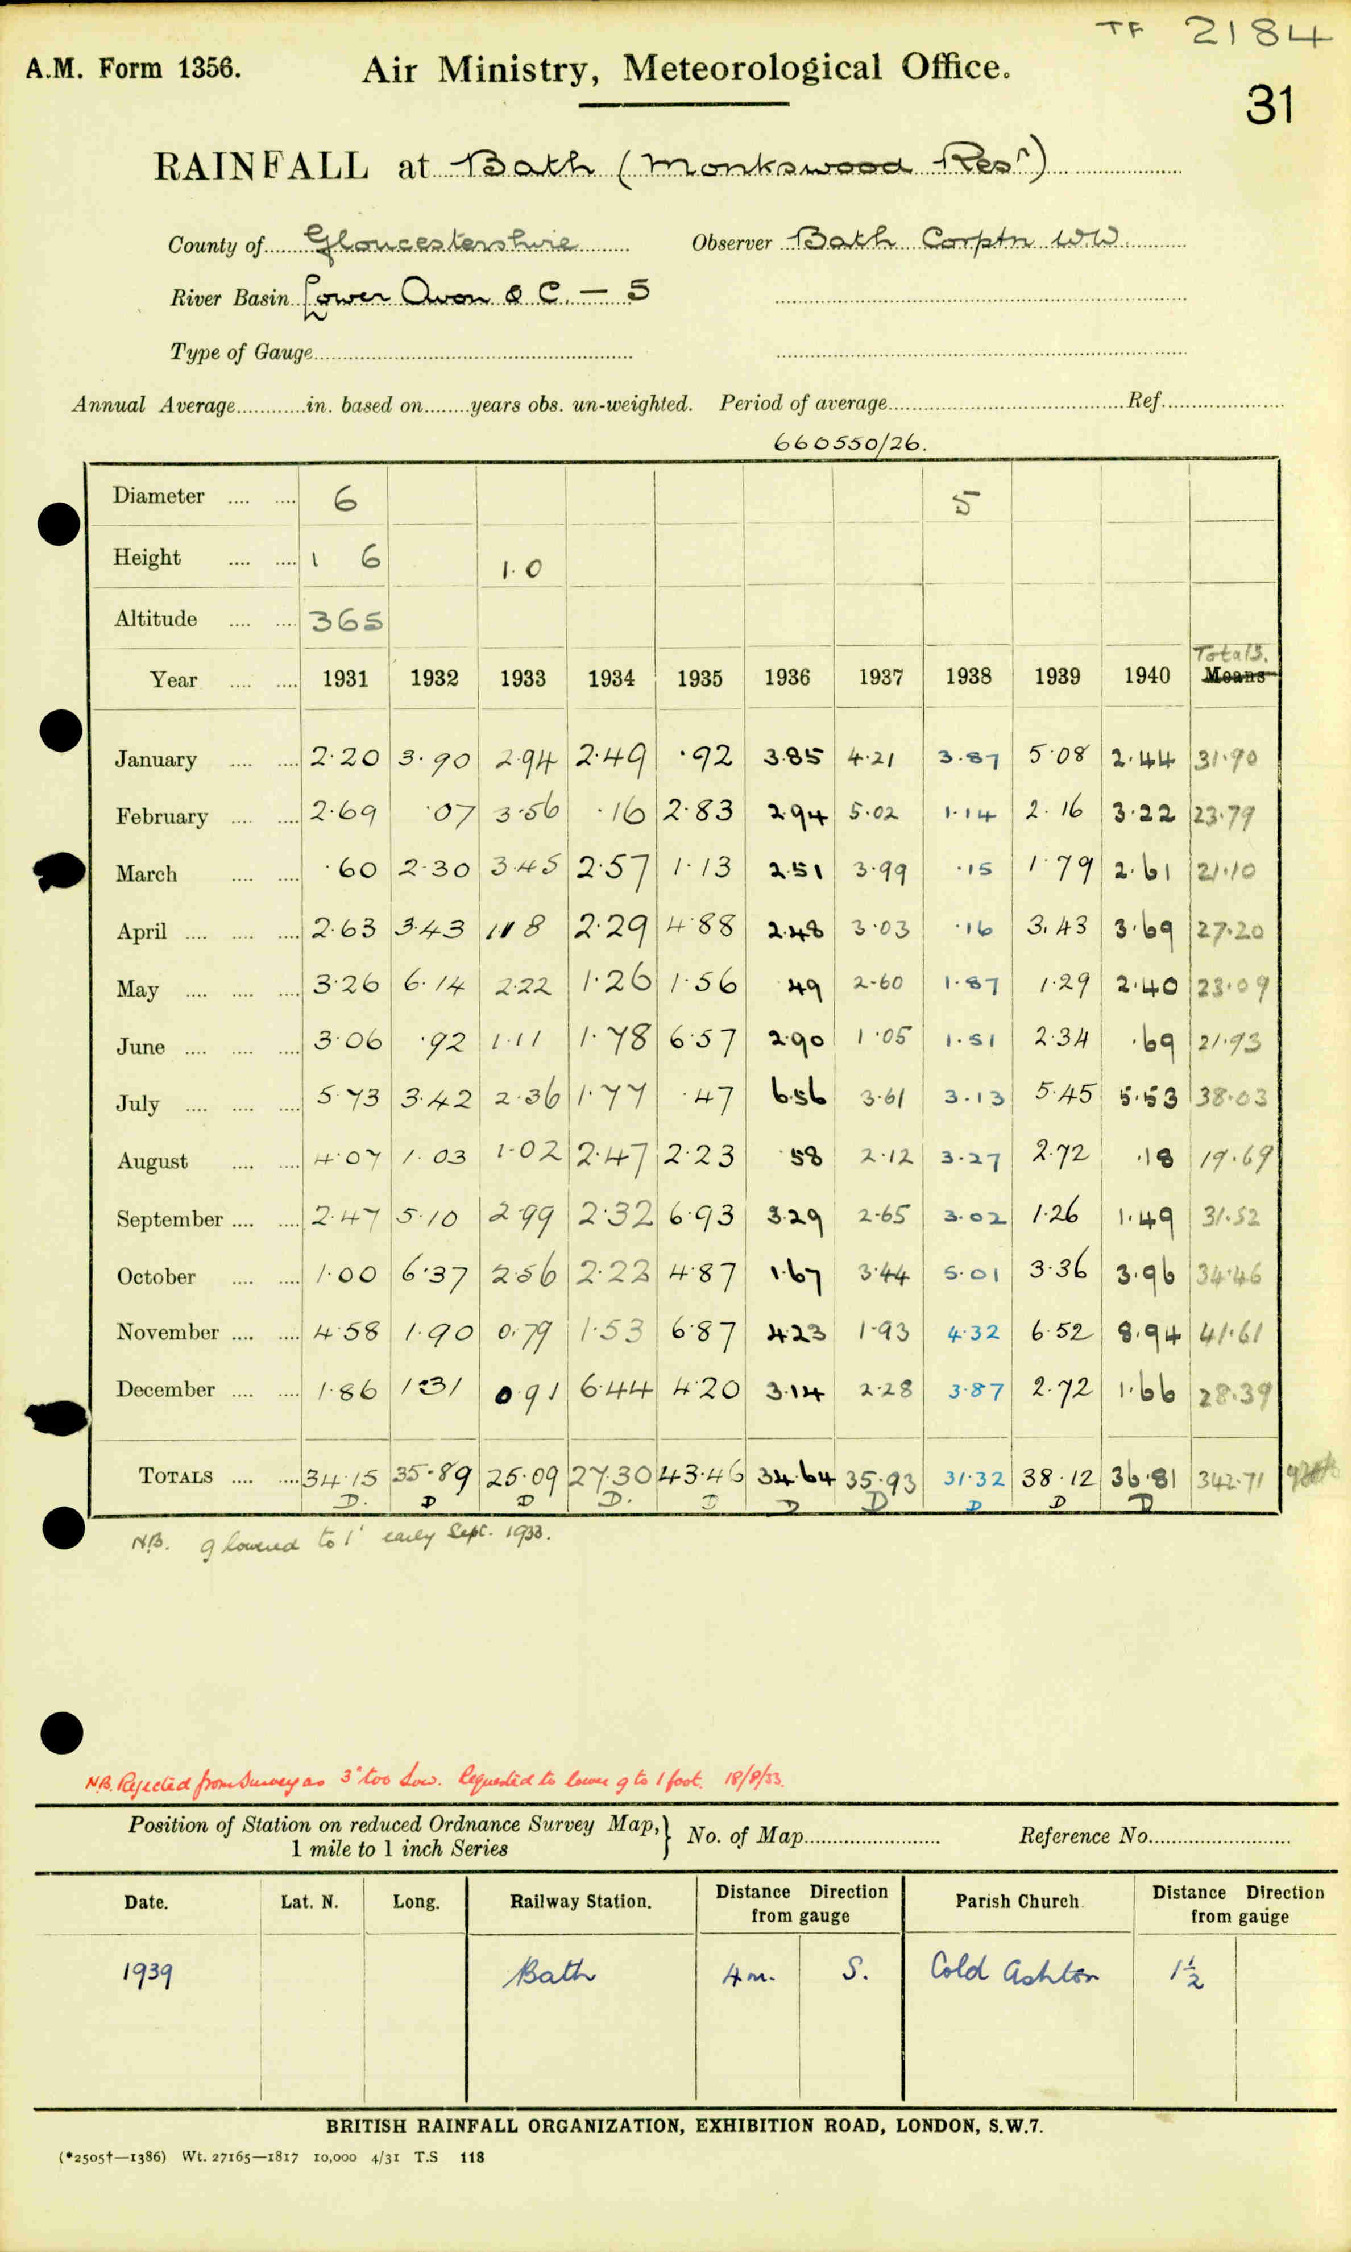 TF 2184
A.M. Form 1356. Air Ministry, Meteorological Office.
31
RAINFALL at Bath (Monkswood Resr)
County of Gloucestershire Observer Bath Corptn W.W.
River Basin Lower Avon & C. — 5
Type of Gauge
Annual Average in. based on years obs. un-weighted. Period of average Ref.
660550/26.
Diameter 6 5
Height 1 6 1.0
Altitude 365
Totals.
Year 1931 1932 1933 1934 1935 1936 1937 1938 1939 1940 Means
January 2.20 3.90 2.94 2.49 .92 3.85 4.21 3.87 5.08 2.44 31.90
February 2.69 .07 3.56 .16 2.83 2.94 5.02 1.14 2.16 3.22 23.79
March .60 2.30 3.45 2.57 1.13 2.51 3.99 .15 1.79 2.61 21.10
April 2.63 3.43 1.18 2.29 4.88 2.48 3.03 .16 3.43 3.69 27.20
May 3.26 6.14 2.22 1.26 1.56 .49 2.60 1.87 1.29 2.40 23.09
June 3.06 .92 1.11 1.78 6.57 2.90 1.05 1.51 2.34 .69 21.93
July 5.73 3.42 2.36 1.77 .47 6.56 3.61 3.13 5.45 5.53 38.03
August 4.07 1.03 1.02 2.47 2.23 .58 2.12 3.27 2.72 .18 19.69
September 2.47 5.10 2.99 2.32 6.93 3.29 2.65 3.02 1.26 1.49 31.52
October 1.00 6.37 2.56 2.22 4.87 1.67 3.44 5.01 3.36 3.96 34.46
November 4.58 1.90 0.79 1.53 6.87 4.23 1.93 4.32 6.52 8.94 41.61
December 1.86 1.31 0.91 6.44 4.20 3.14 2.28 3.87 2.72 1.66 28.39
TOTALS 34.15 35.89 25.09 27.30 43.46 34.64 35.93 31.32 38.12 36.81 342.71
D. D D D. D D D D D D
N.B. g lowered to 1' early Sept. 1933.
N.B. Rejected from Survey as 3" too low. Requested to lower g to 1 foot. 18/8/33.
Position of Station on reduced Ordnance Survey Map,} No. of Map Reference No.
1 mile to 1 inch Series
Date. Lat. N. Long. Railway Station. Distance Direction from gauge Parish Church Distance Direction from gauge
1939 Bath 4 m. S. Cold Ashton 1½
BRITISH RAINFALL ORGANIZATION, EXHIBITION ROAD, LONDON, S.W.7.
(*2505†—1386) Wt. 27165—1817 10,000 4/31 T.S 118